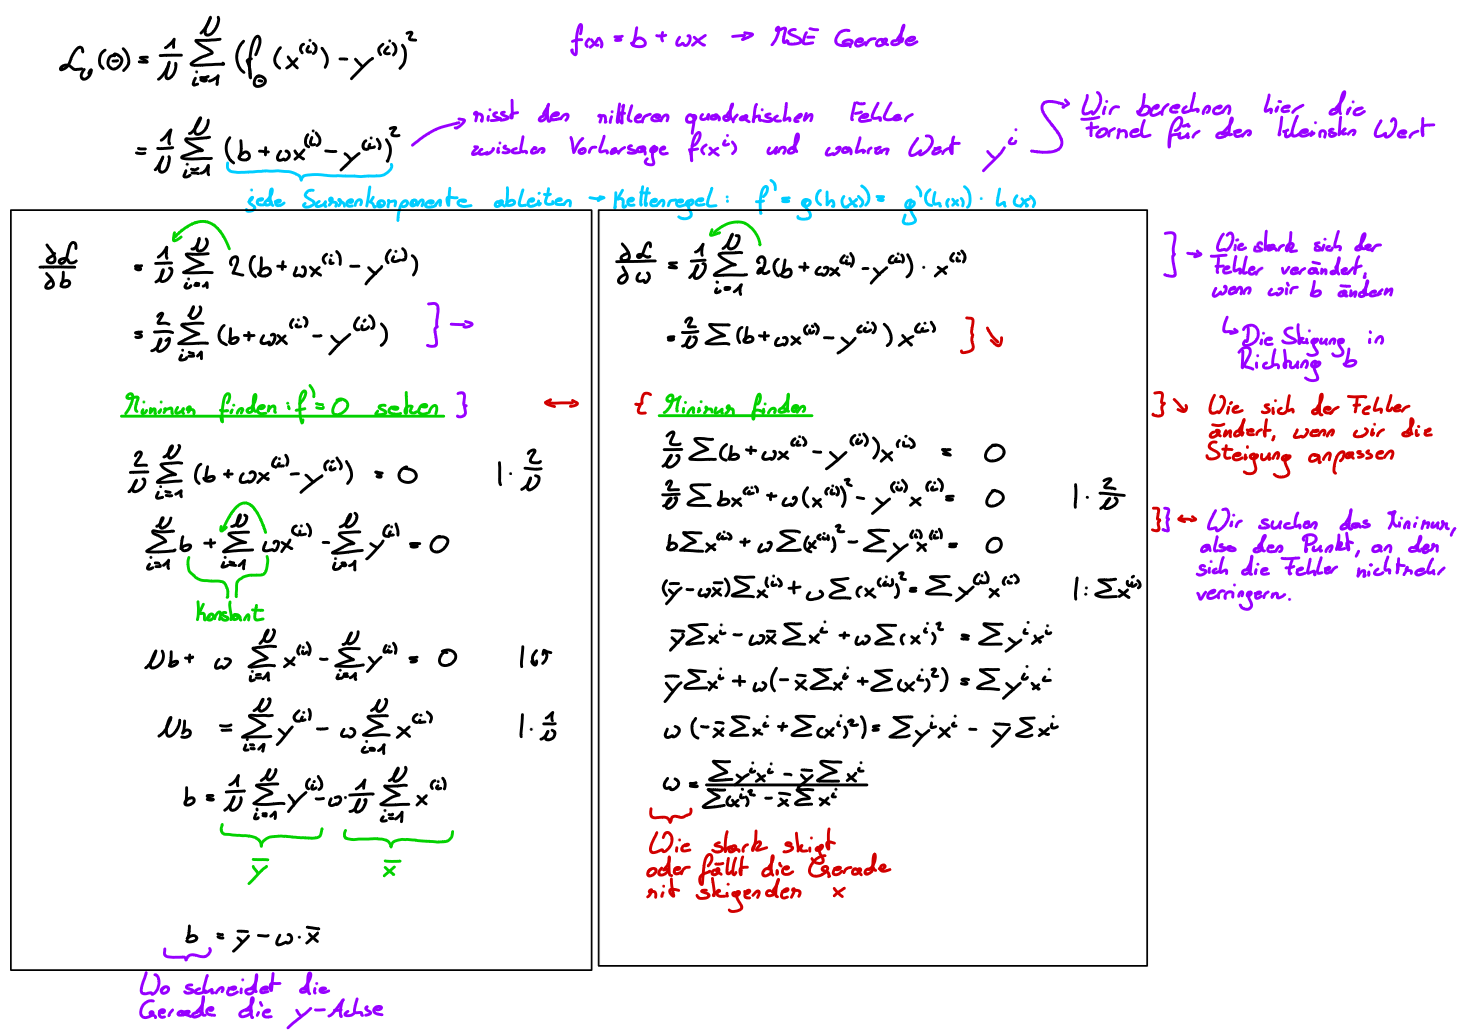 f(x) = b + ωx → MSE Gerade
L_N(Θ) = 1/N ∑_{i=1}^N (f_Θ(x^(i)) - y^(i))²
= 1/N ∑_{i=1}^N (b + ωx^(i) - y^(i))²
misst den mittleren quadratischen Fehler
zwischen Vorhersage f(x^i) und wahren Wert y^i
Wir berechnen hier die
Formel für den kleinsten Wert
jede Summenkomponente ableiten → Kettenregel: f' = g(h(x)) = g'(h(x)) · h(x)
∂L/∂b = 1/N ∑_{i=1}^N 2(b + ωx^(i) - y^(i))
= 2/N ∑_{i=1}^N (b + ωx^(i) - y^(i)) } →
Minimum finden: f' = 0 setzen }
2/N ∑_{i=1}^N (b + ωx^(i) - y^(i)) = 0 | · 2/N
∑_{i=1}^N b + ∑_{i=1}^N ωx^(i) - ∑_{i=1}^N y^(i) = 0
Konstant
Nb + ω ∑_{i=1}^N x^(i) - ∑_{i=1}^N y^(i) = 0
Nb = ∑_{i=1}^N y^(i) - ω ∑_{i=1}^N x^(i) | · 1/N
b = 1/N ∑_{i=1}^N y^(i) - ω · 1/N ∑_{i=1}^N x^(i)
ȳ x̄
b = ȳ - ω · x̄
Wo schneidet die
Gerade die y-Achse
∂L/∂ω = 1/N ∑_{i=1}^N 2(b + ωx^(i) - y^(i)) · x^(i)
= 2/N ∑ (b + ωx^(i) - y^(i)) x^(i) } ↘
↔ { Minimum finden
2/N ∑ (b + ωx^(i) - y^(i)) x^(i) = 0
2/N ∑ bx^(i) + ω(x^(i))² - y^(i)x^(i) = 0 | · 2/N
b∑x^(i) + ω∑(x^(i))² - ∑y^(i)x^(i) = 0
(ȳ - ωx̄)∑x^(i) + ω∑(x^(i))² = ∑y^(i)x^(i) | : ∑x^(i)
ȳ∑x^i - ωx̄∑x^i + ω∑(x^i)² = ∑y^i x^i
ȳ∑x^i + ω(-x̄∑x^i + ∑(x^i)²) = ∑y^i x^i
ω(-x̄∑x^i + ∑(x^i)²) = ∑y^i x^i - ȳ∑x^i
ω = (∑y^i x^i - ȳ∑x^i) / (∑(x^i)² - x̄∑x^i)
Wie stark steigt
oder fällt die Gerade
mit steigenden x
} → Wie stark sich der
Fehler verändert,
wenn wir b ändern
↳ Die Steigung in
Richtung b
} ↘ Wie sich der Fehler
ändert, wenn wir die
Steigung anpassen
}} ↔ Wir suchen das Minimum,
also den Punkt, an dem
sich die Fehler nicht mehr
verringern.